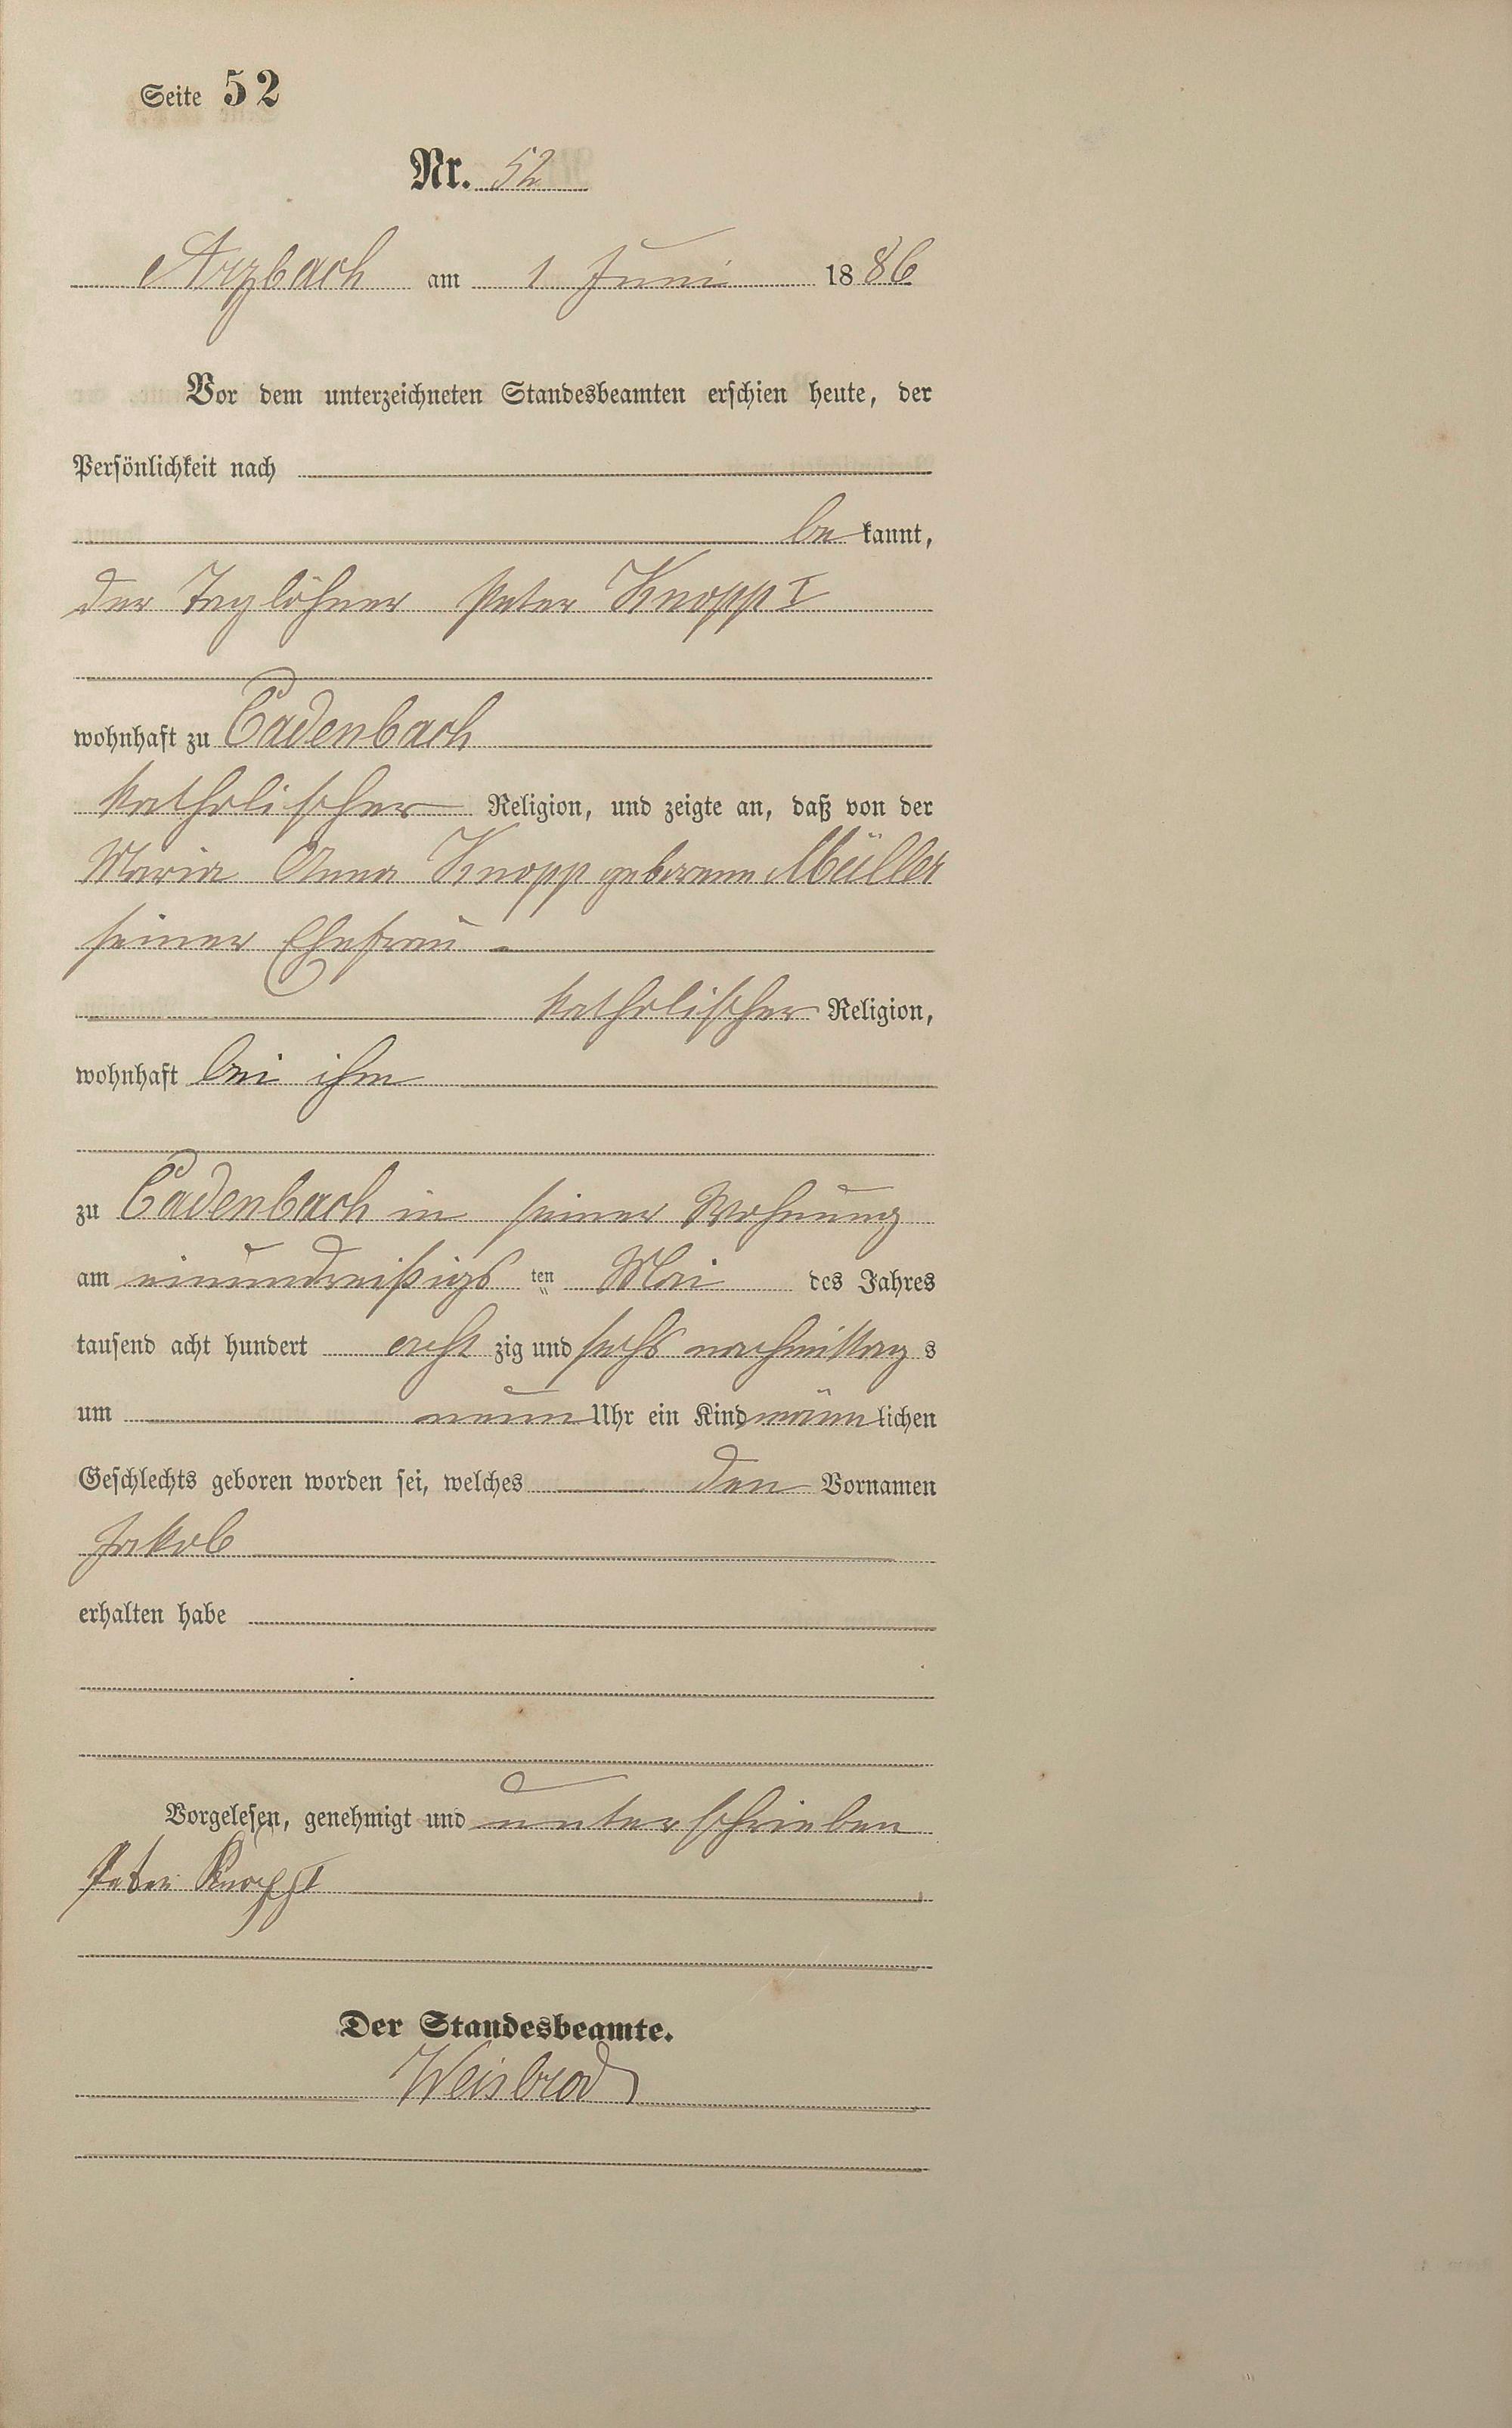 Seite 52
Nr. 52
Arzbach am 1 Juni 1886
Vor dem unterzeichneten Standesbeamten erschien heute, der
Persönlichkeit nach
be kannt,
der Taglöhner Peter Knopp I
wohnhaft zu Cadenbach
katholischer Religion, und zeigte an, daß von der
Maria Anna Knopp geborene Müller
seiner Ehefrau
katholischer Religion,
wohnhaft bei ihm
zu Cadenbach in seiner Wohnung
am einunddreißigs ten Mai des Jahres
tausend acht hundert acht zig und sechs nachmittag s
um neun Uhr ein Kind männ lichen
Geschlechts geboren worden sei, welches den Vornamen
Jakob
erhalten habe
Vorgelesen, genehmigt und unterschrieben
Peter Knopp I
Der Standesbeamte.
Weisbrod